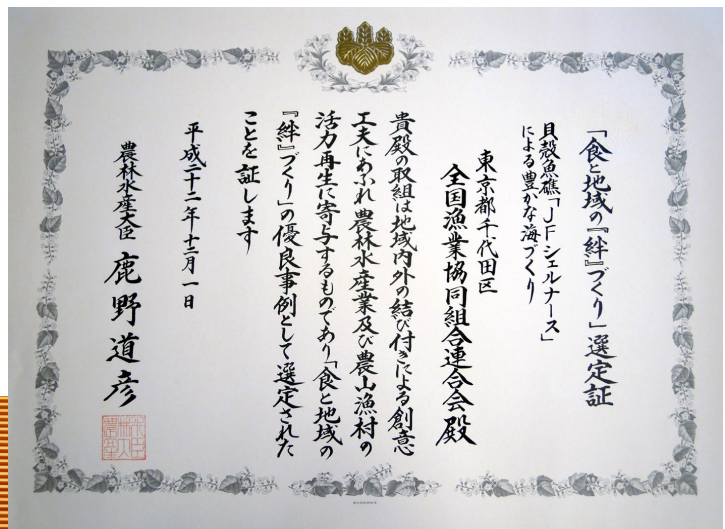 「食と地域の『絆』づくり」選定証
貝殻魚礁「JFシェルナース」
による豊かな海づくり
東京都千代田区
全国漁業協同組合連合会殿
貴殿の取組は地域内外の結び付きによる創意
工夫にあふれ農林水産業及び農山漁村の
活力再生に寄与するものであり「食と地域の
『絆』づくり」の優良事例として選定された
ことを証します
平成二十二年十二月一日
農林水産大臣 鹿野道彦